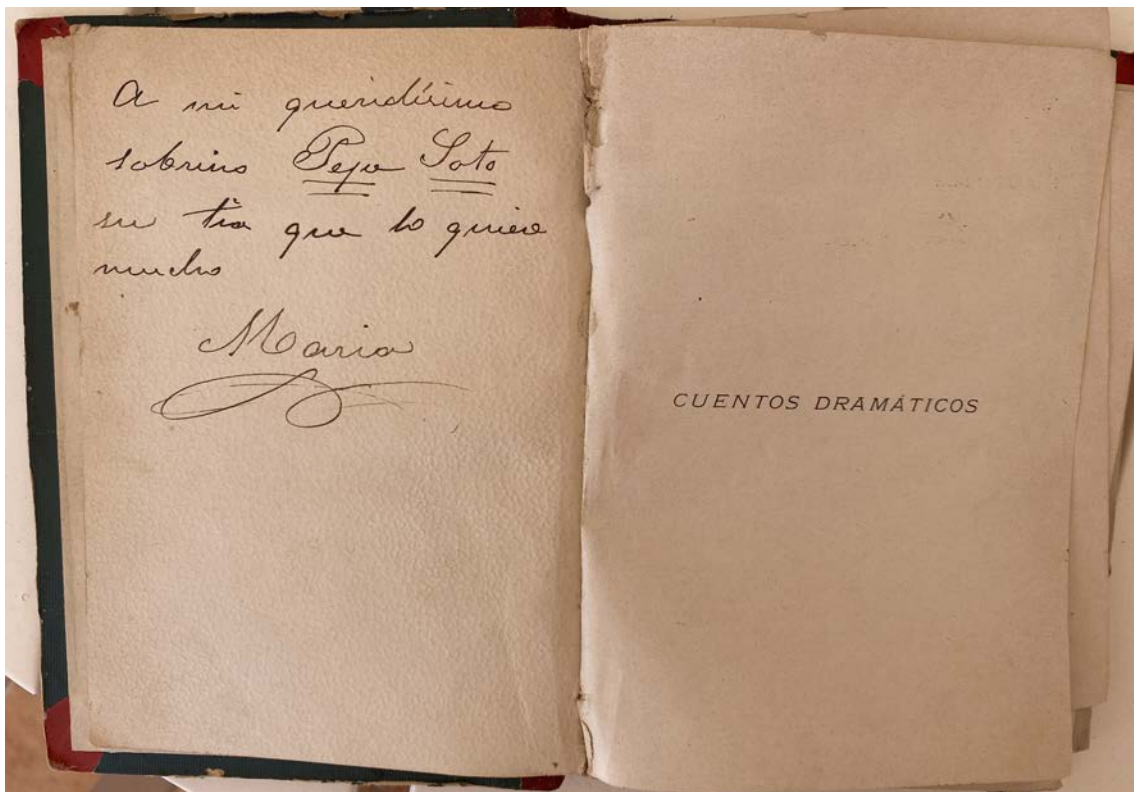 A mi queridísimo
sobrino Pepe Soto
su tía que lo quiere
mucho
Maria
CUENTOS DRAMÁTICOS